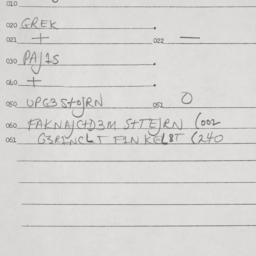 010
020 GREK
021 + 022 —
030 PAJ1S
040 +
050 UPG3StojRN 051 O
060 FAKNAJC+D3M S+TEJRN (002
061 G3RINCLT FINKEL8T (240